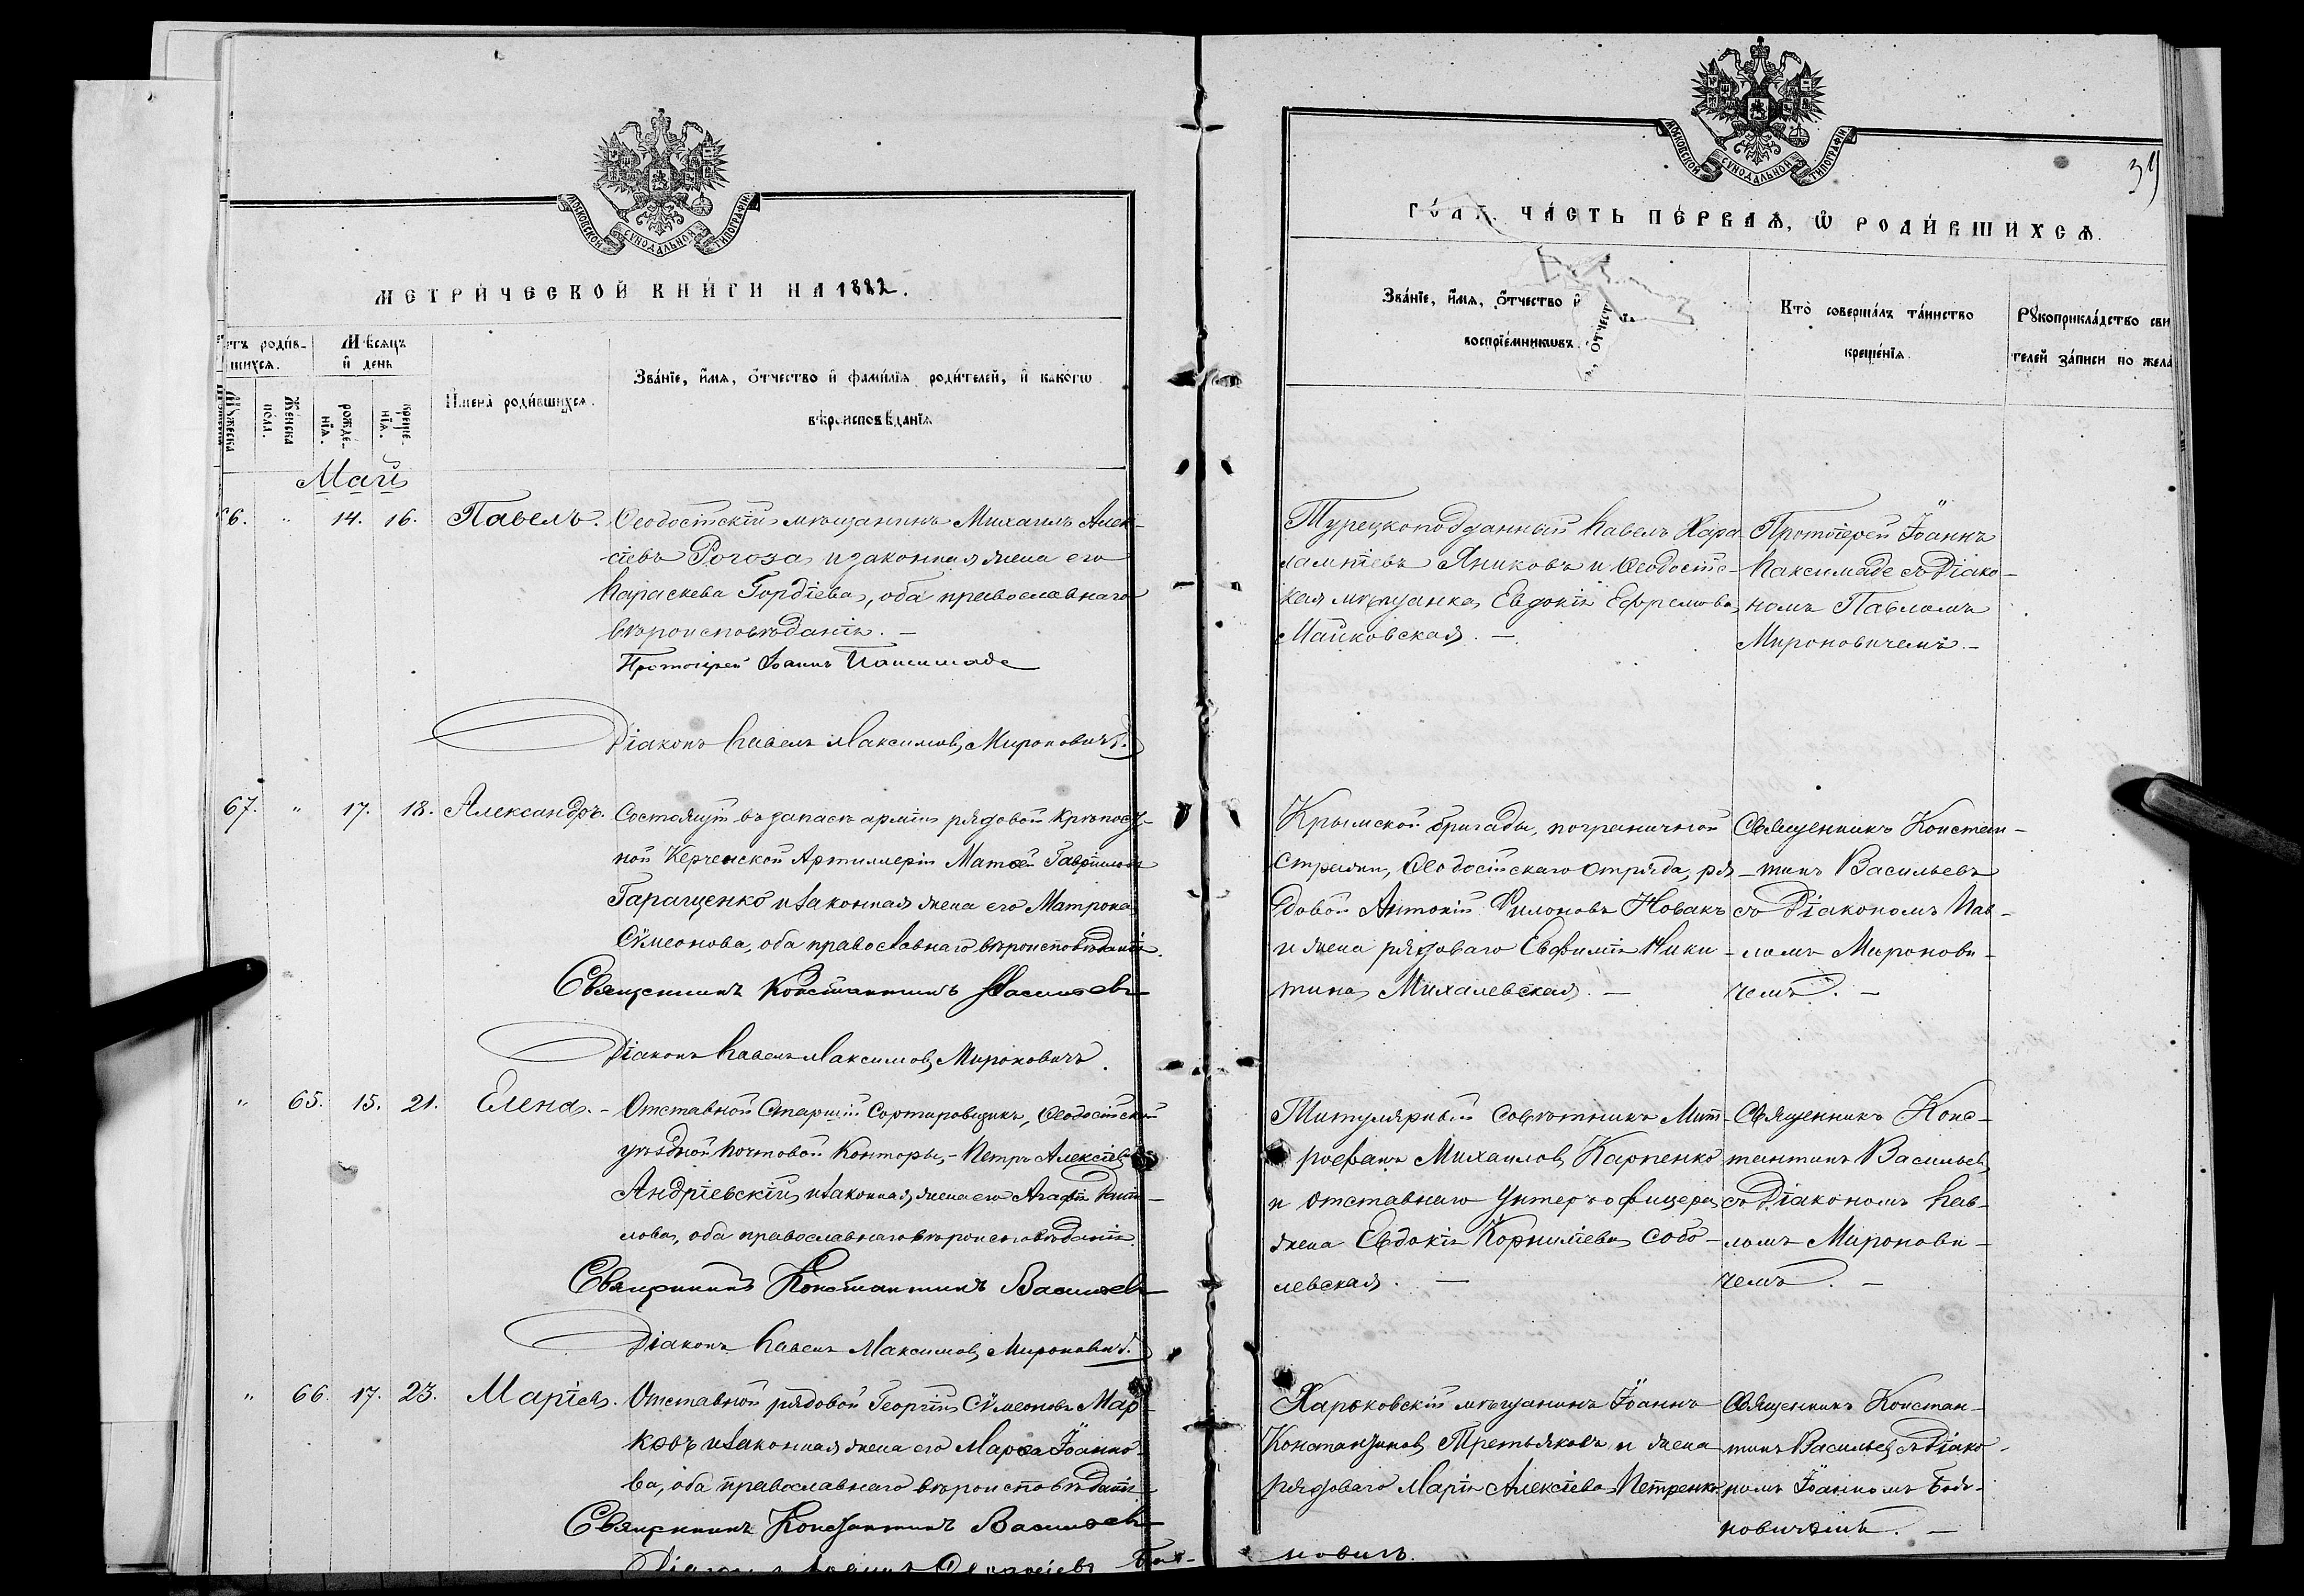 МОСКОВСКОЙ СѴНОДАЛЬНОЙ ТИПОГРАФІИ
МЕТРИ́ЧЕСКОЙ КНИ́ГИ НА 1882.
роди́вшихся.
Мѣ́сяцъ и҆ день
Мꙋ́жеска
Же́нска по́ла.
рожде́нїѧ.
креще́нїѧ.
И҆мена̀ роди́вшихсѧ.
Зва́нїе, и҆́мѧ, ѻ҆́тчество и҆ фами́лїѧ роди́телей, и҆ како́гѡ
вѣроисповѣ́данїѧ
Май
66. " 14. 16. Павелъ. Ѳеодосійскій мѣщанинъ Михаилъ Алек-
сіевъ Рогоза и законная жена его
Параскева Гордіева, оба православнаго
вѣроисповѣданія. —
Протоіерей Іоаннъ Паксимаде
Діаконъ Павелъ Максимовъ Мироновичъ.
67. " 17. 18. Александръ. Состоящій въ запасѣ арміи рядовой крѣпост-
ной Керченской Артиллеріи Матѳей Гавріиловъ
Гаращенко и законная жена его Матрона
Сѵмеонова, оба православнаго вѣроисповѣданія.
Священникъ Константинъ Васильевъ
Діаконъ Павелъ Максимовъ Мироновичъ.
" 65. 15. 21. Елена. - Отставной Старшій Сортировщикъ, Ѳеодосійской
уѣздной почтовой Конторы, - Петръ Алексіевъ
Андріевскій и законная жена его Агафія Дани-
лова, оба православнаго вѣроисповѣданія.
Священникъ Константинъ Васильевъ
Діаконъ Павелъ Максимовъ Мироновичъ.
" 66. 17. 23. Марія. Отставной рядовой Георгій Сѵмеоновъ Мар-
ковъ и законная жена его Марѳа Іоанно-
ва, оба православнаго вѣроисповѣданія
Священникъ Константинъ Васильевъ
Діаконъ
МОСКОВСКОЙ СѴНОДАЛЬНОЙ ТИПОГРАФІИ
39
ГО́ДА. ЧА́СТЬ ПЕ́РВАѦ, Ѡ҆ РОДИ́ВШИХСѦ.
Зва́нїе, и҆́мѧ, ѻ҆́тчество и҆
воспрїе́мникѡвъ.
Кто̀ соверша́лъ та́инство
креще́нїѧ.
Рꙋкоприкла́дство сви
телей за́писи по жела
Турецкоподданный Павелъ Хара-
лампіевъ Яниковъ и Ѳеодосій-
ская мѣщанка Евдокія Ефремова
Майковская. —
Протоіерей Іоаннъ
Паксимаде съ Діако-
номъ Павломъ
Мироновичемъ. -
Крымской бригады, пограничной
Стражи, Ѳеодосійскаго отряда, ря-
довой Антоній Филоновъ Новакъ
и жена рядоваго Евфимія Ники-
тина Михалевская. —
Священникъ Констан-
тинъ Васильевъ
съ Діакономъ Пав-
ломъ Миронови-
чемъ. —
Титулярный Совѣтникъ Мит-
рофанъ Михаиловъ Карпенко
и отставнаго Унтеръ-офицера
жена Евдокія Корниліева Собо-
левская. —
Священникъ Конс-
тантинъ Васильевъ
съ Діакономъ Пав-
ломъ Миронови-
чемъ. —
Харьковскій мѣщанинъ Іоаннъ
Константиновъ Третьяковъ и жена
рядоваго Марія Алексіева Петренко
Священникъ Констан-
тинъ Васильевъ съ Діако-
номъ Іоанномъ
новичемъ. —
новичъ.